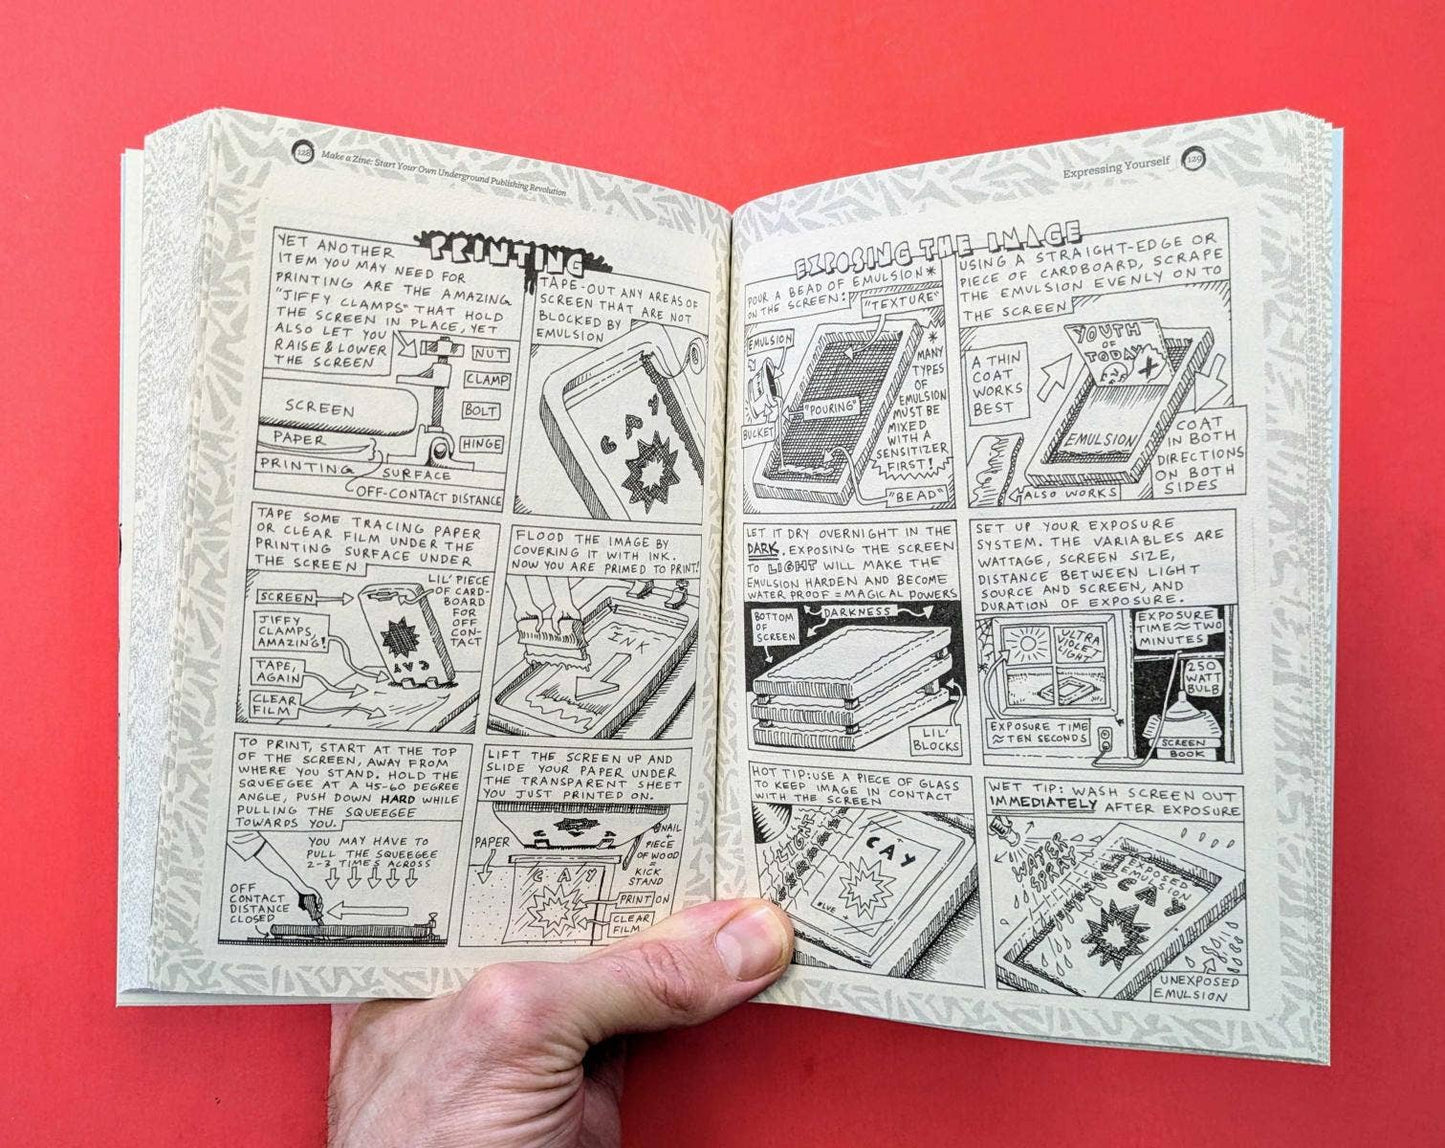 128
Make a Zine: Start Your Own Underground Publishing Revolution
PRINTING
YET ANOTHER
ITEM YOU MAY NEED FOR
PRINTING ARE THE AMAZING
"JIFFY CLAMPS" THAT HOLD
THE SCREEN IN PLACE, YET
ALSO LET YOU
RAISE & LOWER
THE SCREEN
NUT
CLAMP
BOLT
HINGE
SCREEN
PAPER
PRINTING
SURFACE
OFF-CONTACT DISTANCE
TAPE-OUT ANY AREAS OF
SCREEN THAT ARE NOT
BLOCKED BY
EMULSION
CAY
TAPE SOME TRACING PAPER
OR CLEAR FILM UNDER THE
PRINTING SURFACE UNDER
THE SCREEN
SCREEN
JIFFY
CLAMPS,
AMAZING!
TAPE,
AGAIN
CLEAR
FILM
LIL' PIECE
OF CARD-
BOARD
FOR
OFF
CON-
TACT
CAY
FLOOD THE IMAGE BY
COVERING IT WITH INK.
NOW YOU ARE PRIMED TO PRINT!
INK
TO PRINT, START AT THE TOP
OF THE SCREEN, AWAY FROM
WHERE YOU STAND. HOLD THE
SQUEEGEE AT A 45-60 DEGREE
ANGLE, PUSH DOWN HARD WHILE
PULLING THE SQUEEGEE
TOWARDS YOU.
YOU MAY HAVE TO
PULL THE SQUEEGEE
2-3 TIMES ACROSS
OFF
CONTACT
DISTANCE
CLOSED
LIFT THE SCREEN UP AND
SLIDE YOUR PAPER UNDER
THE TRANSPARENT SHEET
YOU JUST PRINTED ON.
PAPER
NAIL
+
PIECE
OF WOOD
=
KICK
STAND
CAY
PRINT ON
CLEAR
FILM
Expressing Yourself
129
EXPOSING THE IMAGE
POUR A BEAD OF EMULSION*
ON THE SCREEN:
"TEXTURE"
EMULSION
BUCKET
"POURING"
"BEAD"
*
MANY
TYPES
OF
EMULSION
MUST BE
MIXED
WITH A
SENSITIZER
FIRST!
USING A STRAIGHT-EDGE OR
PIECE OF CARDBOARD, SCRAPE
THE EMULSION EVENLY ON TO
THE SCREEN
A THIN
COAT
WORKS
BEST
YOUTH
OF
TODAY
X
EMULSION
ALSO WORKS
COAT
IN BOTH
DIRECTIONS
ON BOTH
SIDES
LET IT DRY OVERNIGHT IN THE
DARK. EXPOSING THE SCREEN
TO LIGHT WILL MAKE THE
EMULSION HARDEN AND BECOME
WATER PROOF = MAGICAL POWERS
BOTTOM
OF
SCREEN
DARKNESS
LIL'
BLOCKS
SET UP YOUR EXPOSURE
SYSTEM. THE VARIABLES ARE
WATTAGE, SCREEN SIZE,
DISTANCE BETWEEN LIGHT
SOURCE AND SCREEN, AND
DURATION OF EXPOSURE.
ULTRA
VIOLET
LIGHT
EXPOSURE TIME
≈ TEN SECONDS
EXPOSURE
TIME ≈ TWO
MINUTES
250
WATT
BULB
SCREEN
BOOK
HOT TIP: USE A PIECE OF GLASS
TO KEEP IMAGE IN CONTACT
WITH THE SCREEN
LIGHT
CAY
BLUE
WET TIP: WASH SCREEN OUT
IMMEDIATELY AFTER EXPOSURE
WATER
SPRAY
EXPOSED
EMULSION
CAY
UNEXPOSED
EMULSION